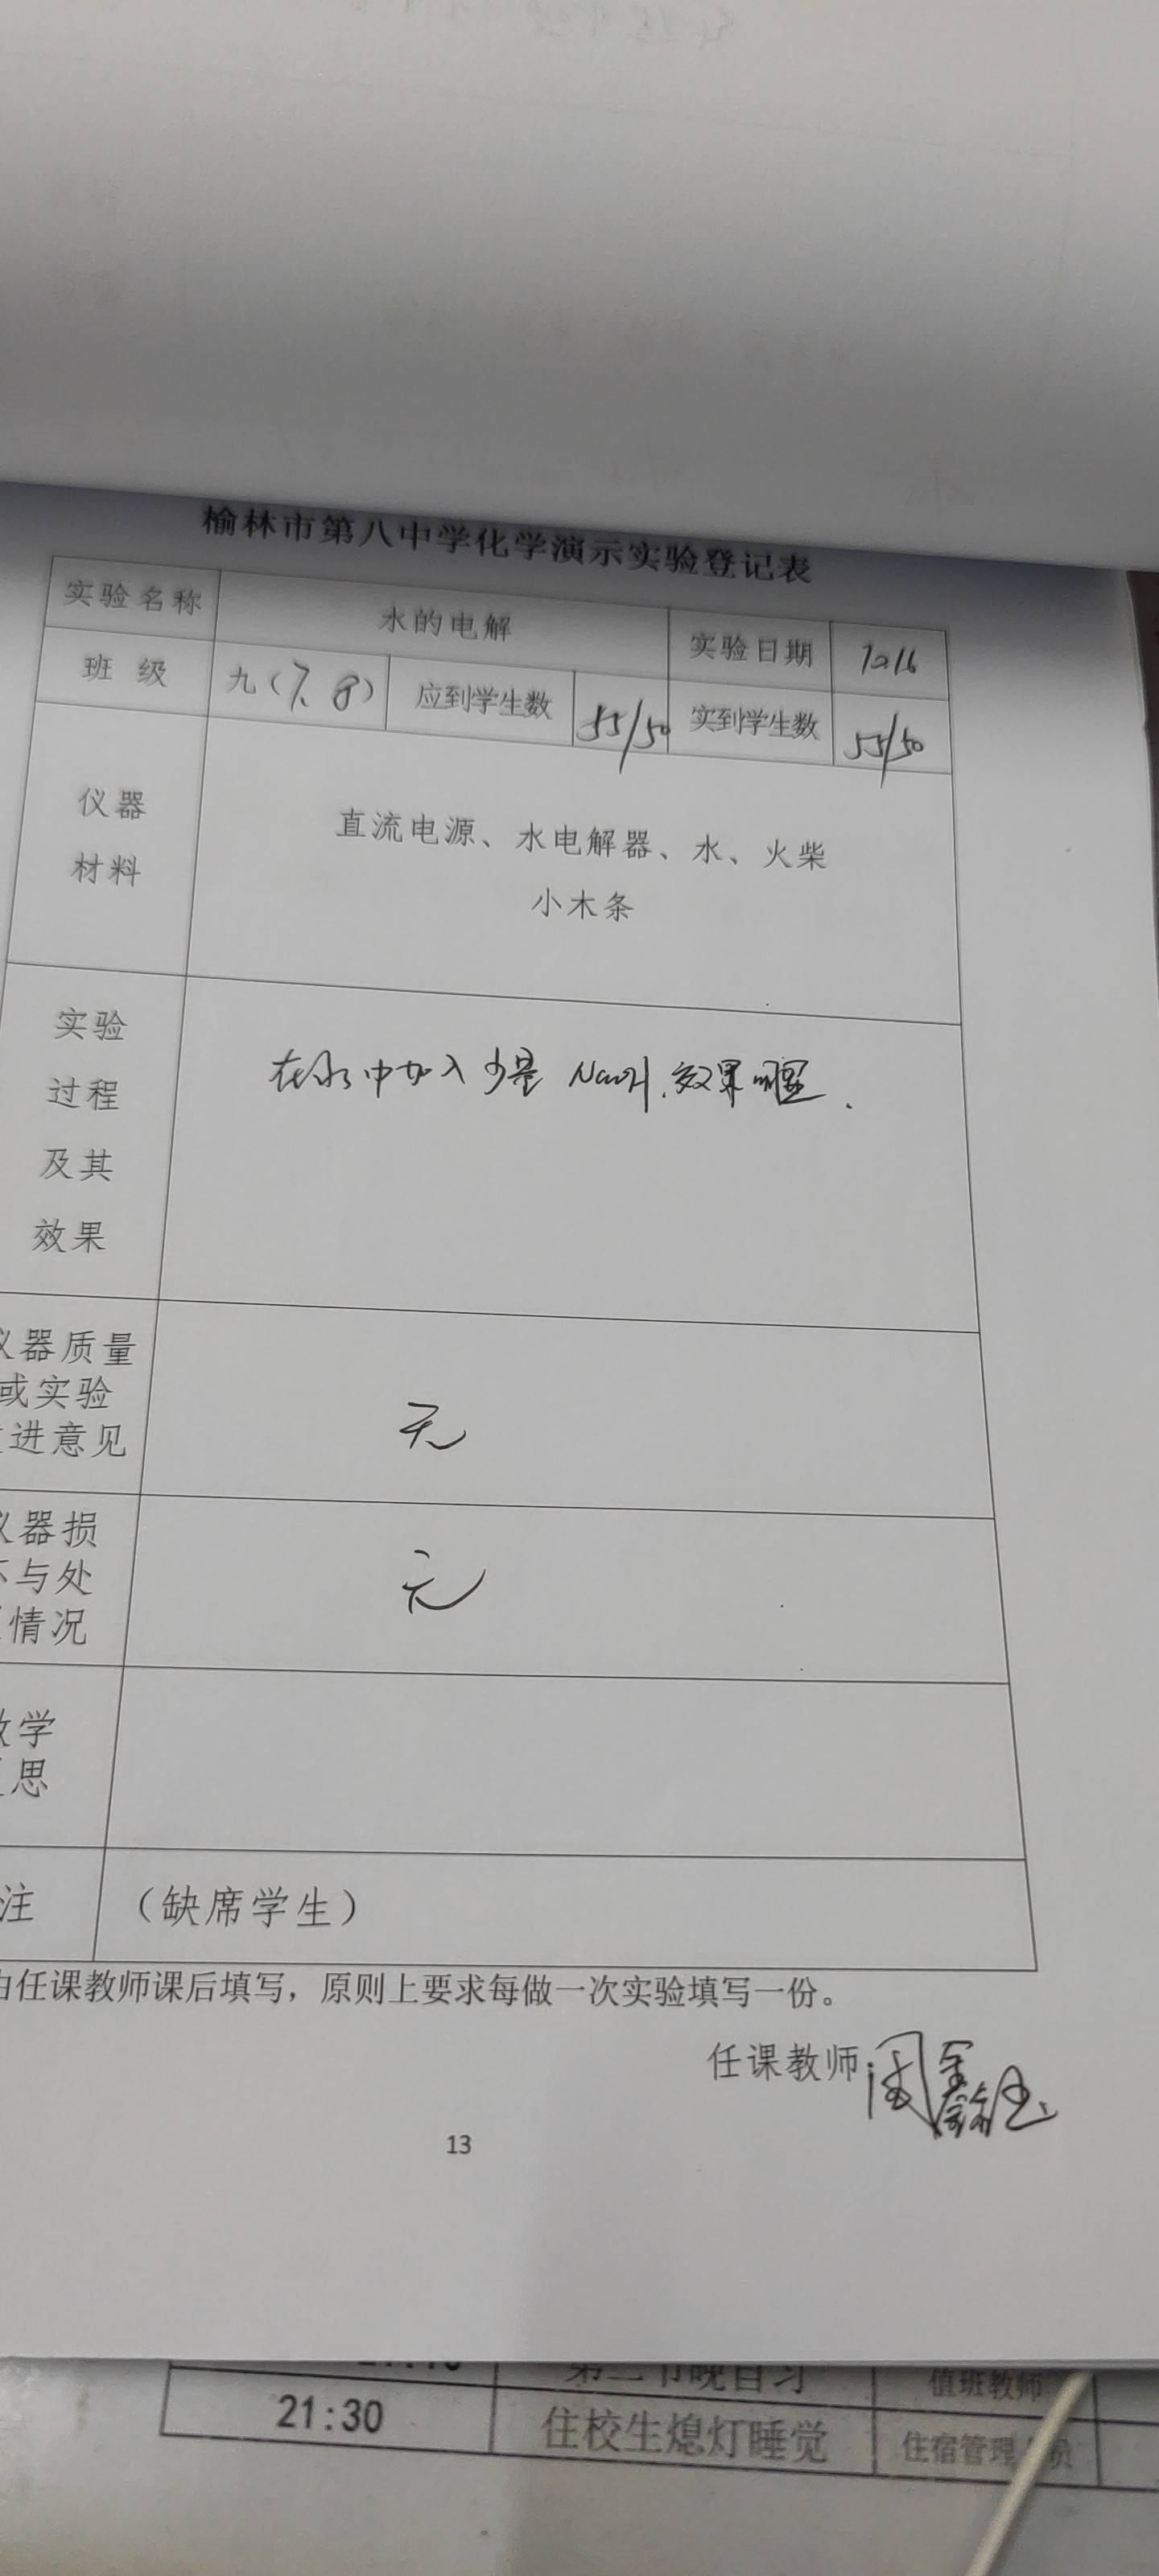 榆林市第八中学化学演示实验登记表
实验名称 水的电解 实验日期
班 级 九（7、8） 应到学生数 55/50 实到学生数 55/50
仪器
材料
直流电源、水电解器、水、火柴
小木条
实验
过程
及其
效果
在水中加入少量 NaOH，效果明显.
仪器质量
或实验
进意见
无
仪器损
与处
情况
无
学
思
注 （缺席学生）
由任课教师课后填写，原则上要求每做一次实验填写一份。
任课教师：周鑫
13
第二节晚自习 值班教师
21:30 住校生熄灯睡觉 住宿管理